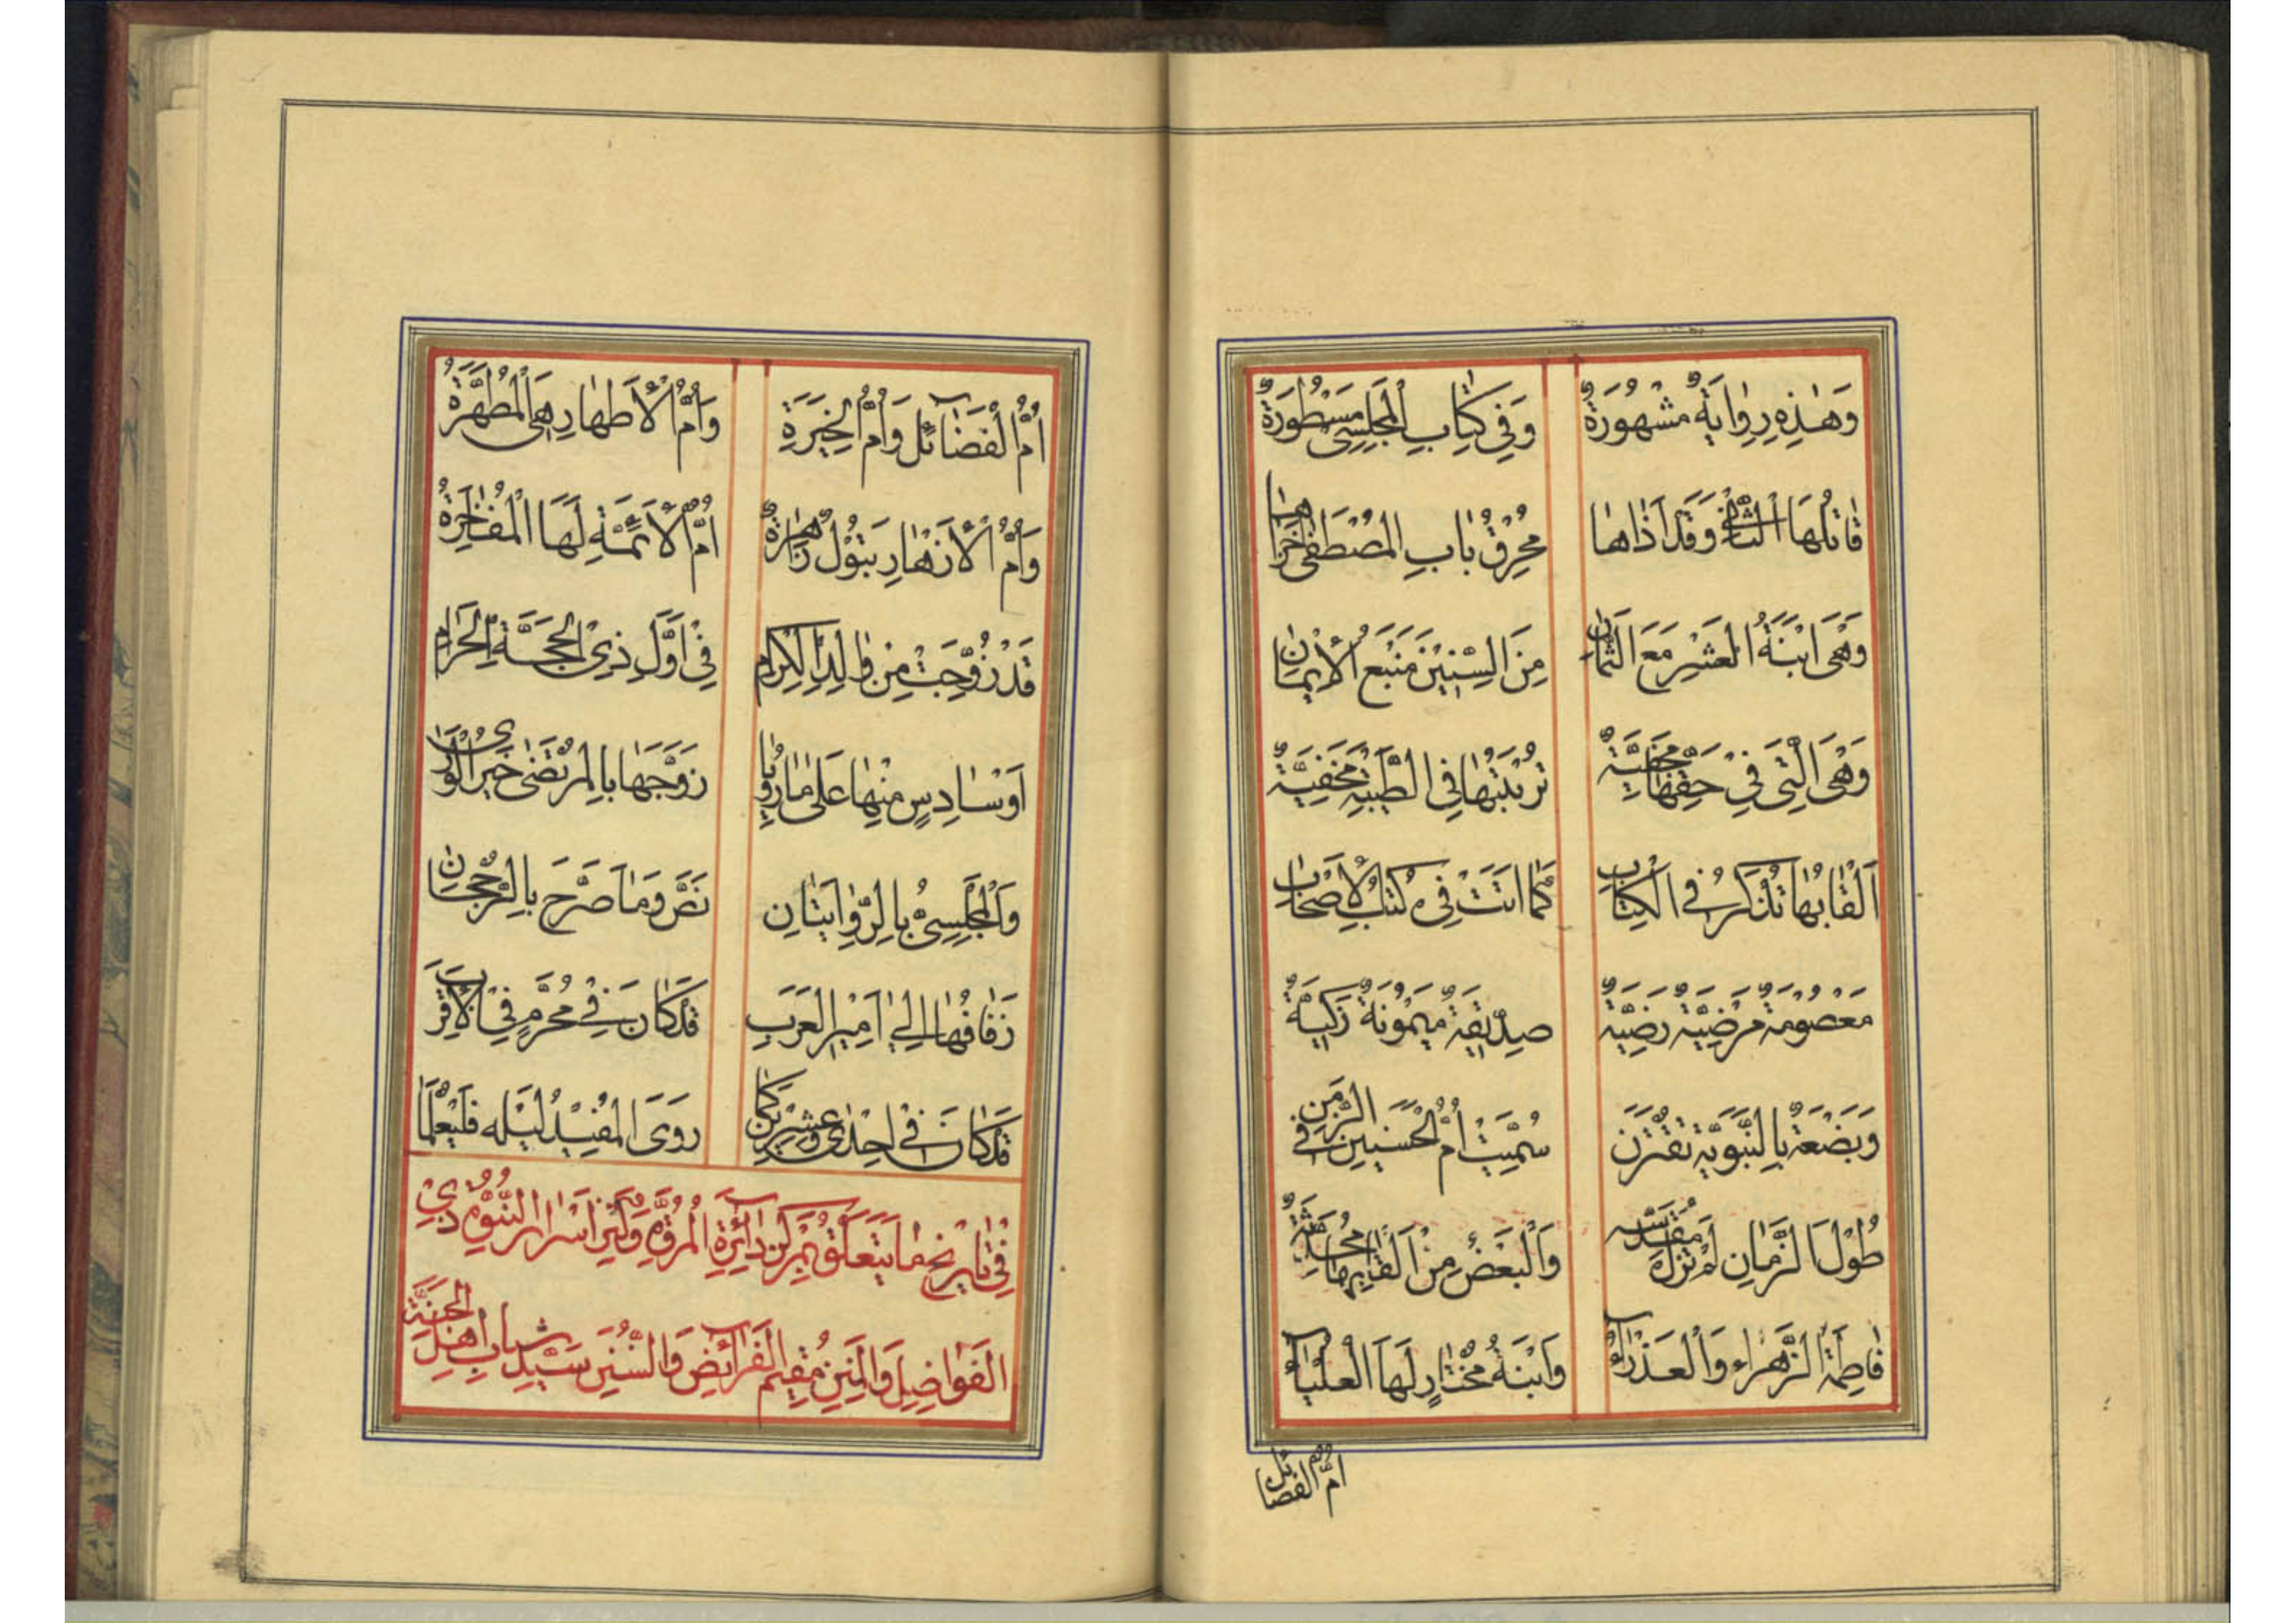 وَهٰذِهِ رِوٰايَةٌ مَشْهُورَةٌ وَفِي كِتٰابِ الْمَجْلِسِيّ مَسْطُورَةٌ
قٰاتِلُهَا الثّٰانِي وَقَدْ اَذٰاهٰا مُحْرِقُ بٰابِ الْمُصْطَفٰى
وَهْىَ ابْنَةُ الْعَشْرِ مَعَ الثَّمٰانِ مِنَ السِّنِيْنَ مَنْبَعُ الْأِيْمٰانِ
وَهْىَ الَّتِي فِيْ حَقِّهٰا تُرْبَتُهٰا فِي الطَّيْبَةِ مَخْفِيَّةٌ
اَلْقٰابُهٰا تُذْكَرُ فِي الْكِتٰابِ كَمٰا اَتَتْ فِي كُتُبِ الْأَصْحٰابِ
مَعْصُومَةٌ مَرْضِيَّةٌ رَضِيَّةٌ صِدِّيْقَةٌ مَيْمُونَةٌ زَكِيَّةٌ
وَبَضْعَةٌ بِالنَّبَوِيَّةِ تَقْتَرَنُ سُمِّيَتْ اُمَّ الْحَسَنَيْنِ فِي الزَّمَنِ
طُوْلَ الزَّمٰانِ لَمْ تَزَلْ مُقَدَّسَه وَالْبَعْضُ مِنْ اَلْقٰابِهٰا مُحَدَّثَةٌ
فٰاطِمَةُ الزَّهْرٰاءِ وَالْعَذْرٰآءُ وَابْنَةُ مُخْتٰارٍ لَهَا الْعَلْيٰآءُ
اُمُّ الْفَضٰائِل
اُمُّ الْفَضٰآئِلِ وَاُمُّ الْخِيَرَةِ وَاُمُّ الْأَطْهٰارِ هِيَ الْمُطَهَّرَةُ
وَاُمُّ الْأَزْهٰارِ بَتُوْلٌ زٰاهِرَةٌ اُمُّ الْأَئِمَّةِ لَهَا الْمُفٰاخِرَةُ
قَدْ زُوِّجَتْ مِنْ وٰالِدِ الْكِرٰامِ فِيْ اَوَّلِ ذِي الْحِجَّةِ الْحَرٰامِ
اَوْ سٰادِسٍ مِنْهٰا عَلىٰ مٰا رُوِيٰا زَوَّجَهٰا بِالْمُرْتَضىٰ خَيْرُ الْوَرىٰ
وَالْمَجْلِسِيُّ بِالرِّوٰايَتٰانِ نَصَّ وَمٰا صَرَّحَ بِالرُّجْحٰانِ
زَفٰافُهٰا اِلىٰ اَمِيْرِ الْعَرَبِ قَدْ كٰانَ فِيْ مُحَرَّمٍ فِي الْأَقْرَبِ
قَدْ كٰانَ فِيْ اِحْدٰى وَعِشْرِيْنَ كَمٰا رَوَى الْمُفِيْدُ لَيْلَه فَلْيُعْلَمٰا
فِي تٰارِيْخِ مٰا يَتَعَلَّقُ بِمَرْكَزِ دٰآئِرَةِ الْمُرُوَّةِ وَكَنْزِ اَسْرٰارِ النُّبُوَّةِ ذِيْ
الْفَوٰاضِلِ وَالْمِنَنِ مُقِيْمِ الْفَرٰآئِضِ وَالسُّنَنِ سَيِّدِ شَبٰابِ اَهْلِ الْجَنَّةِ